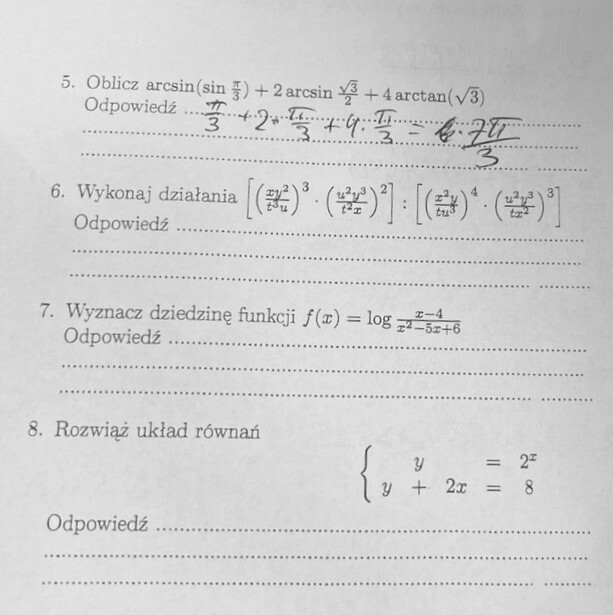 5. Oblicz arcsin(sin π/3) + 2 arcsin √3/2 + 4 arctan(√3)
Odpowiedź π/3 + 2 · π/3 + 4 · π/3 = 7π/3
6. Wykonaj działania [(xy²/t³u)³ · (u²y³/t²x)²] : [(x²y/tu³)⁴ · (u²y³/tx²)³]
Odpowiedź
7. Wyznacz dziedzinę funkcji f(x) = log x−4/x²−5x+6
Odpowiedź
8. Rozwiąż układ równań
{ y = 2ˣ
y + 2x = 8
Odpowiedź